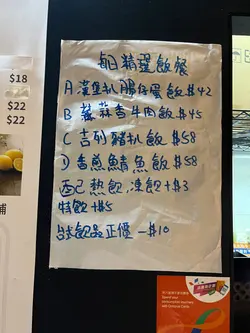 每日精選飯餐
A 漢堡扒腸仔蛋飯 $42
B 蕃茄香牛肉飯 $45
C 吉列豬扒飯 $58
D 香煎鯖魚飯 $58
配熱飲,凍飲+$3
特飲+$5
台式飲品正價 -$10
$18
$22
$22